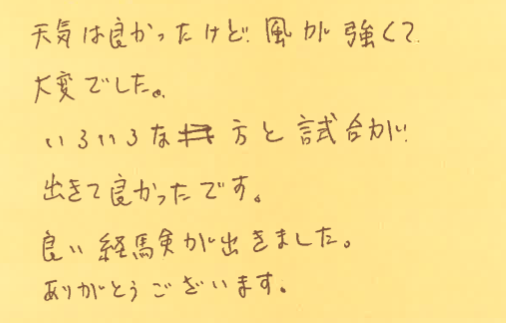 天気は良かったけど風が強くて
大変でした。
いろいろな方と試合が
出きて良かったです。
良い経験が出きました。
ありがとうございます。